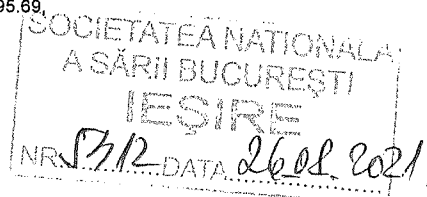 95.69,
SOCIETATEA NATIONALA
A SĂRII BUCUREŞTI
IEŞIRE
NR 5312 DATA 26.08.2021